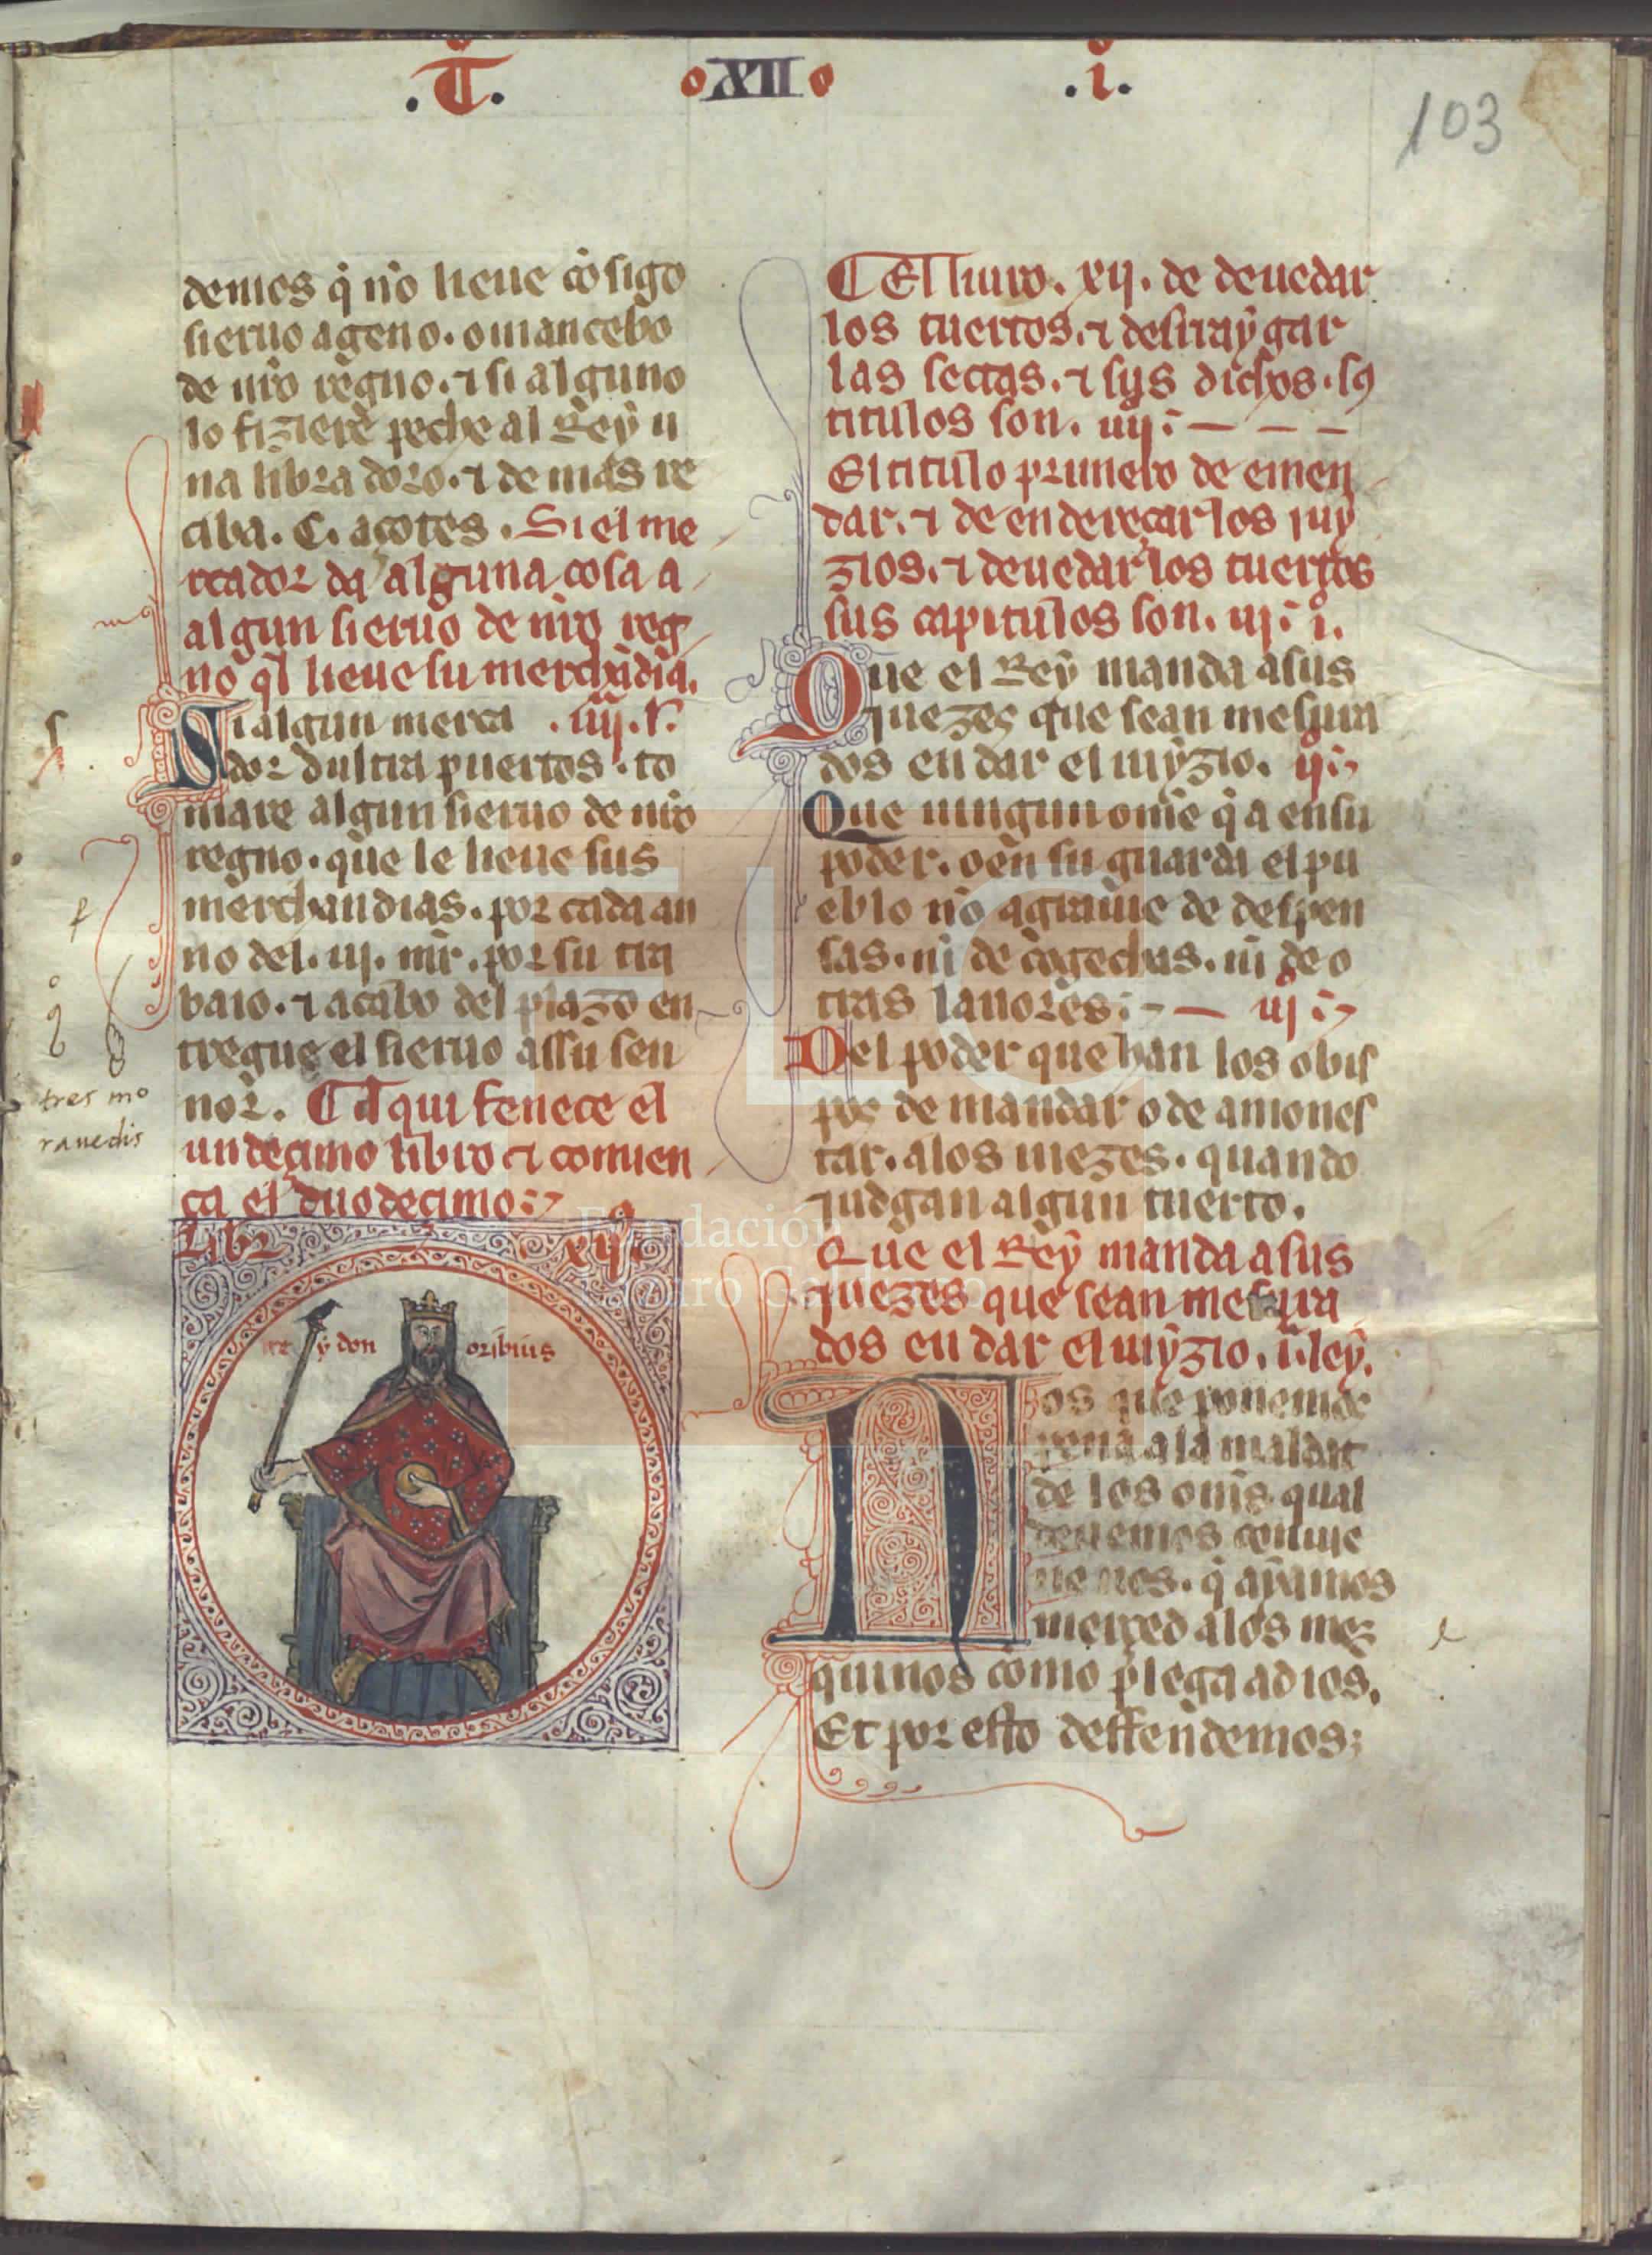 .T. XII .i.
103
demos q̃ nõ lieue cõsigo
sieruo ageno. o mancebo
de nr̃o regno. ⁊ si alguno
lo fiziere peche al Rey u
na libra doro. ⁊ de mas re
ciba. C. açotes. Si el me
rcador da alguna cosa a
algun sieruo de nr̃o reg
no q̃l lieue su merchãdia.
Si algun merca .iiij. l.
dor dultra puertos. to
mare algun sieruo de nr̃o
regno. que le lieue sus
merchandias. por cada an
no del. iij. mr̃. por su tra
baio. ⁊ acabo del plazo en
tregue el sieruo assu sen
nor. Aqui fenece el
undecimo libro ⁊ comien
ça el duodecimo:
tres mo
rauedis
Libr xijº
rey don oribius
El liuro. xij. de deuedar
los tuertos. ⁊ desrraygar
las sectas. ⁊ sus dichos. s9
titulos son. iij:
El titulo primero de emen
dar. ⁊ de endereçar los iuy
zios. ⁊ deuedar los tuertos
sus capitulos son. iij: i.
Que el Rey manda a sus
iuezes que sean mesura
dos en dar el iuyzio. ij:
Que ningun om̃e q̃ a en su
poder. o en su guarda el pu
eblo nõ agrauie de despen
sas. ni de cogechas. ni de o
tras lauores: iij:
Del poder que han los obis
pos de mandar o de amones
tar. a los iuezes. quando
iudgan algun tuerto.
Que el Rey manda a sus
iuezes que sean mesura
dos en dar el iuyzio. i. ley.
Nos que ponemos
pena a la maldat
de los om̃s qual
deuemos conuie
ne nos. q̃ ayamos
merced a los mez
quinos como plega a dios.
Et por esto deffendemos;
FLG
Fundación
Lázaro Galdiano